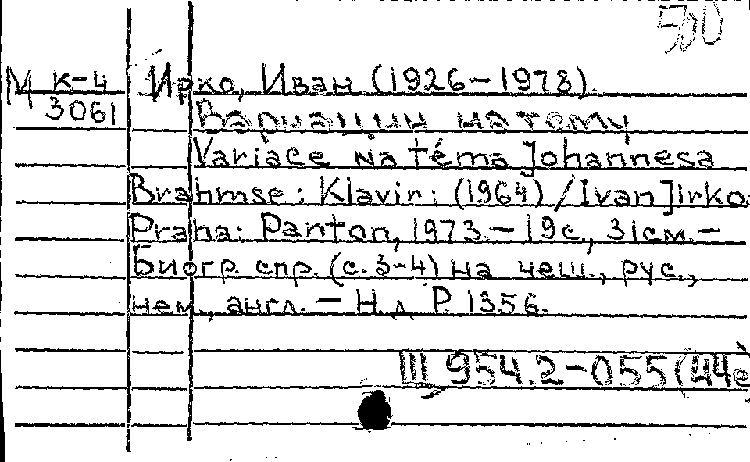 500
М К-4 Ирко, Иван (1926-1978).
3061 Вариации на тему
Variace na téma Johannesa
Brahmse: Klavír: (1964) / Ivan Jirko
Praha: Panton, 1973. - 19с., 31см. -
Биогр. спр. (с. 3-4) на чеш., рус.,
нем., англ. - Н.д. Р. 1356.
III 954.2-055(44е